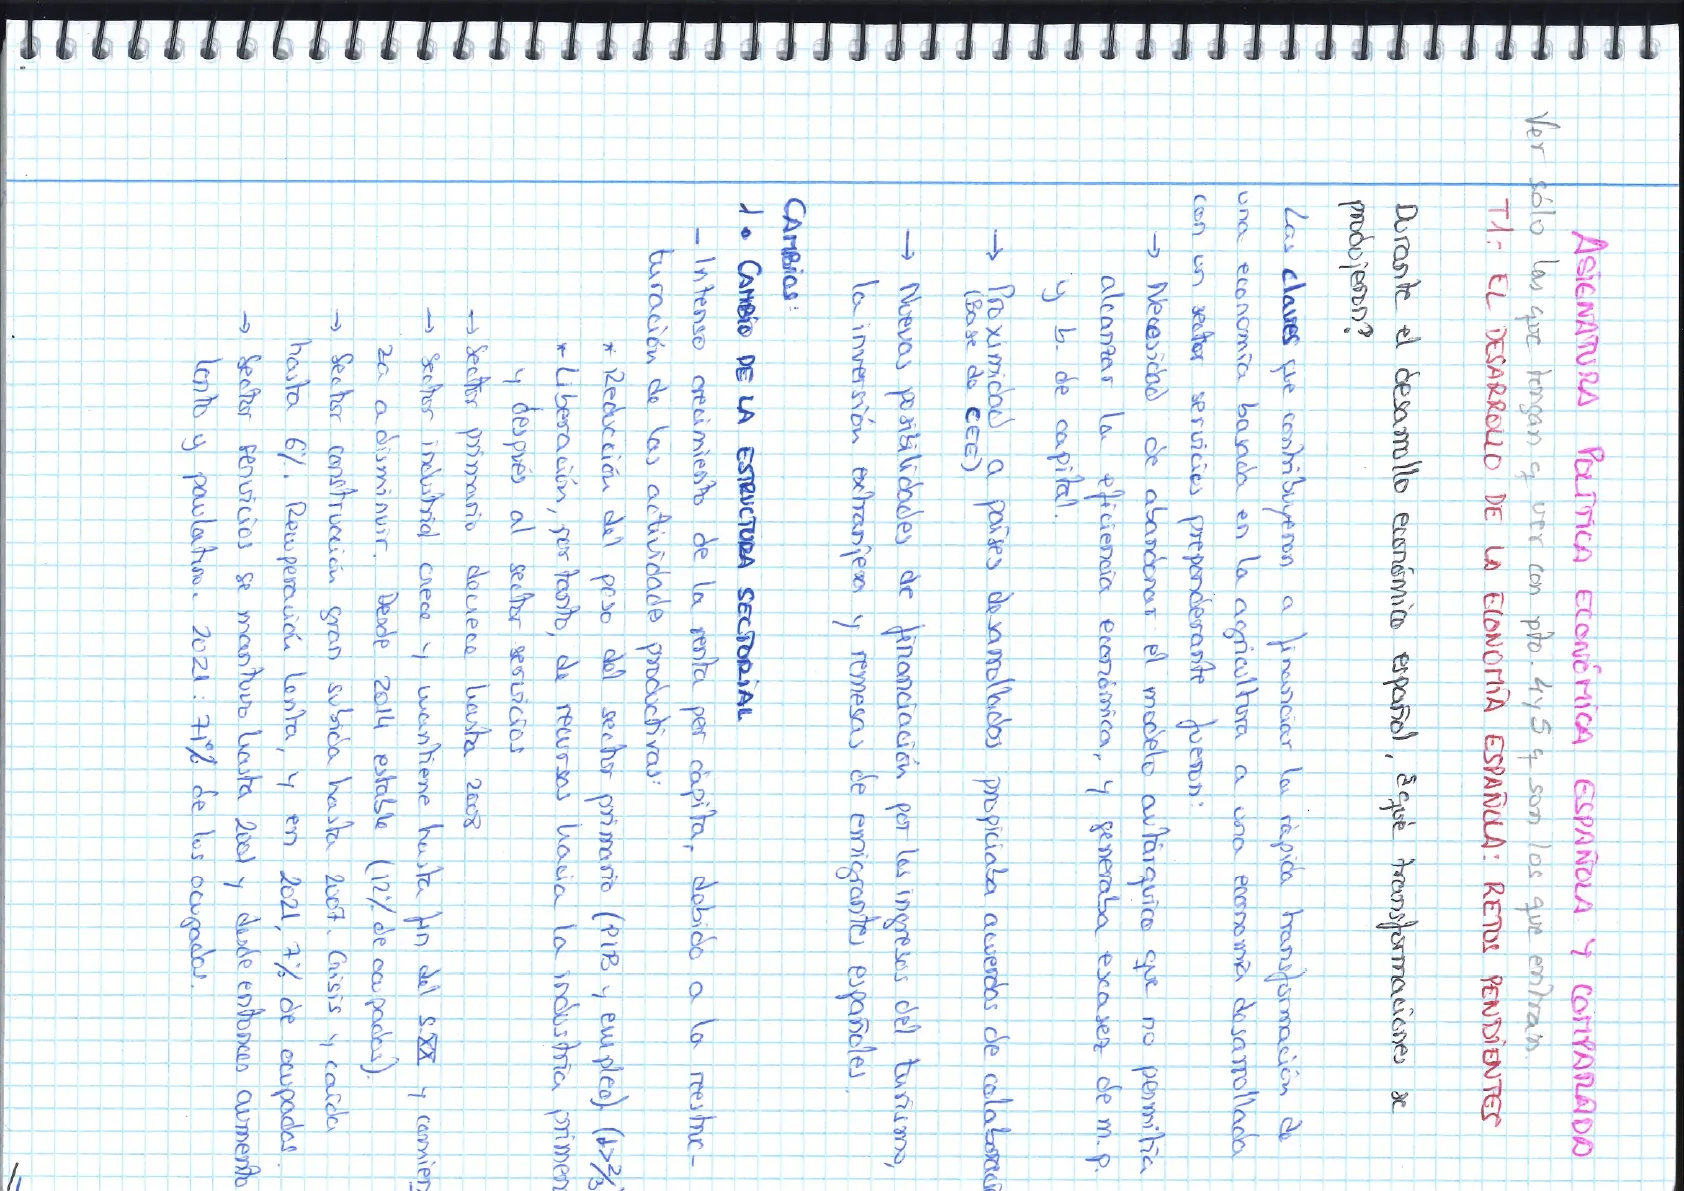 ASIGNATURA POLÍTICA ECONÓMICA ESPAÑOLA Y COMPARADA
Ver sólo las que tengan q ver con pto. 4 y 5 q son los que entran.
T1.- EL DESARROLLO DE LA ECONOMÍA ESPAÑOLA: RETOS PENDIENTES
Durante el desarrollo económico español, ¿qué transformaciones se
produjeron?
Las claves que contribuyeron a financiar la rápida transformación de
una economía basada en la agricultura a una economía desarrollada
con un sector servicios preponderante fueron:
→ Necesidad de abandonar el modelo autárquico que no permitía
alcanzar la eficiencia económica, y generaba escasez de m.p.
y b. de capital.
→ Proximidad a países desarrollados propiciaba acuerdos de colaboraci
(Base de CEE)
→ Nuevas posibilidades de financiación por los ingresos del turismo,
la inversión extranjera y remesas de emigrantes españoles.
CAMBIOS:
1. CAMBIO DE LA ESTRUCTURA SECTORIAL
- Intenso crecimiento de la renta per cápita, debido a la restruc-
turación de las actividade productivas:
* Reducción del peso del sector primario (PIB y empleo) (↓>2/3
* Liberación, por tanto, de recursos hacia la industria primer
y después al sector servicios
→ Sector primario decrece hasta 2008
→ Sector industrial crece y mantiene hasta fin del S.XX y comien
za a disminuir. Desde 2014 estable (12% de ocupados).
→ Sector construcción gran subida hasta 2007. Crisis y caída
hasta 6%. Recuperación lenta, y en 2021, 7% de ocupados.
→ Sector servicios se mantuvo hasta 2001 y desde entonces aumento
lento y paulatino. 2021: 71% de los ocupados.